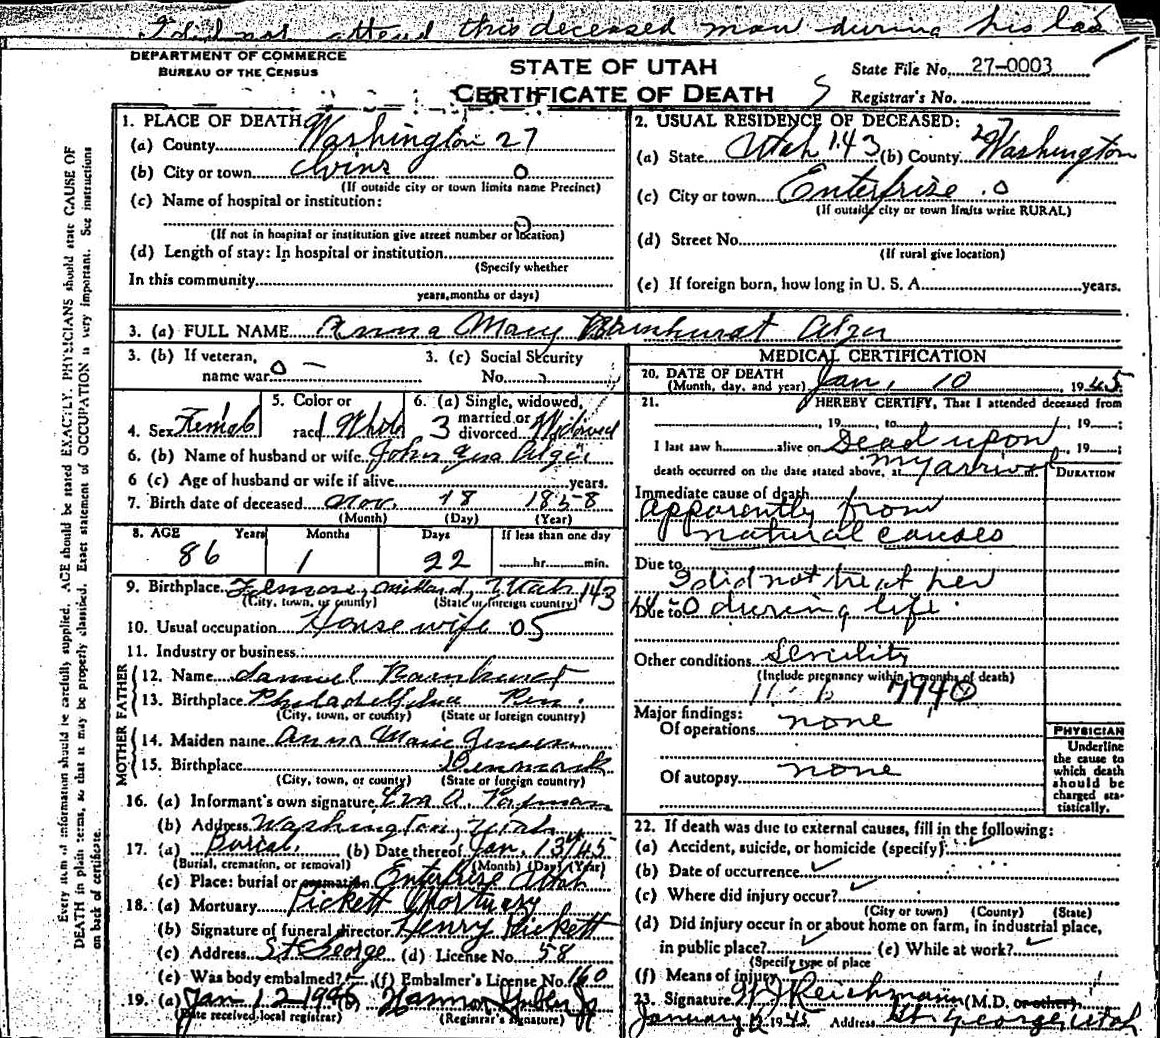 I did not attend this deceased man during his las
DEPARTMENT OF COMMERCE
BUREAU OF THE CENSUS
STATE OF UTAH
CERTIFICATE OF DEATH
State File No. 27-0003
Registrar's No.
Every item of information should be carefully supplied. AGE should be stated EXACTLY. PHYSICIANS should state CAUSE OF
DEATH in plain terms, so that it may be properly classified. Exact statement of OCCUPATION is very important. See instructions
on back of certificate.
1. PLACE OF DEATH
(a) County Washington 27
(b) City or town Ivins 0
(If outside city or town limits name Precinct)
(c) Name of hospital or institution:
(If not in hospital or institution give street number or location)
(d) Length of stay: In hospital or institution
(Specify whether
In this community
years, months or days)
2. USUAL RESIDENCE OF DECEASED:
(a) State Utah 143 (b) County 27 Washington
(c) City or town Enterprise 0
(If outside city or town limits write RURAL)
(d) Street No.
(If rural give location)
(e) If foreign born, how long in U. S. A. years.
3. (a) FULL NAME Anna Mary Barnhurst Alger
3. (b) If veteran,
name war 0 –
3. (c) Social Security
No.
4. Sex Female
5. Color or
race White
6. (a) Single, widowed,
married or
divorced 3 Widowed
6. (b) Name of husband or wife John Alger
6 (c) Age of husband or wife if alive years.
7. Birth date of deceased Nov. 18 1858
(Month) (Day) (Year)
8. AGE Years Months Days If less than one day
86 1 22 hr. min.
9. Birthplace Millard, Utah 143
(City, town, or county) (State or foreign country)
10. Usual occupation House wife 05
11. Industry or business
FATHER
12. Name Samuel Barnhurst
13. Birthplace Philadelphia Pen.
(City, town, or county) (State or foreign country)
MOTHER
14. Maiden name Anna Marie Jensen
15. Birthplace Denmark
(City, town, or county) (State or foreign country)
16. (a) Informant's own signature Eva A.
(b) Address Washington, Utah
17. (a) Burial (b) Date thereof Jan. 13/45
(Burial, cremation, or removal) (Month) (Day) (Year)
(c) Place: burial or cremation Enterprise Utah
18. (a) Mortuary Pickett Mortuary
(b) Signature of funeral director Henry Pickett
(c) Address St George (d) License No. 58
(e) Was body embalmed? (f) Embalmer's License No. 160
19. (a) Jan 12
(Date received local registrar) (Registrar's signature)
MEDICAL CERTIFICATION
20. DATE OF DEATH
(Month, day, and year) Jan. 10, 1945
21. I HEREBY CERTIFY, That I attended deceased from
, 19 , to , 19 ;
I last saw h alive on Dead upon, 19 ;
death occurred on the date stated above, at my arrival
DURATION
Immediate cause of death
apparently from
natural causes
Due to
I did not treat her
Due to during life.
Other conditions Senility
(Include pregnancy within 3 months of death)
Major findings:
Of operations none
Of autopsy none
PHYSICIAN
Underline
the cause to
which death
should be
charged sta-
tistically.
22. If death was due to external causes, fill in the following:
(a) Accident, suicide, or homicide (specify)
(b) Date of occurrence
(c) Where did injury occur?
(City or town) (County) (State)
(d) Did injury occur in or about home on farm, in industrial place,
in public place? (e) While at work?
(Specify type of place
(f) Means of injury
23. Signature Reichmann (M.D. or other)
January 12 1945 Address St. George, Utah